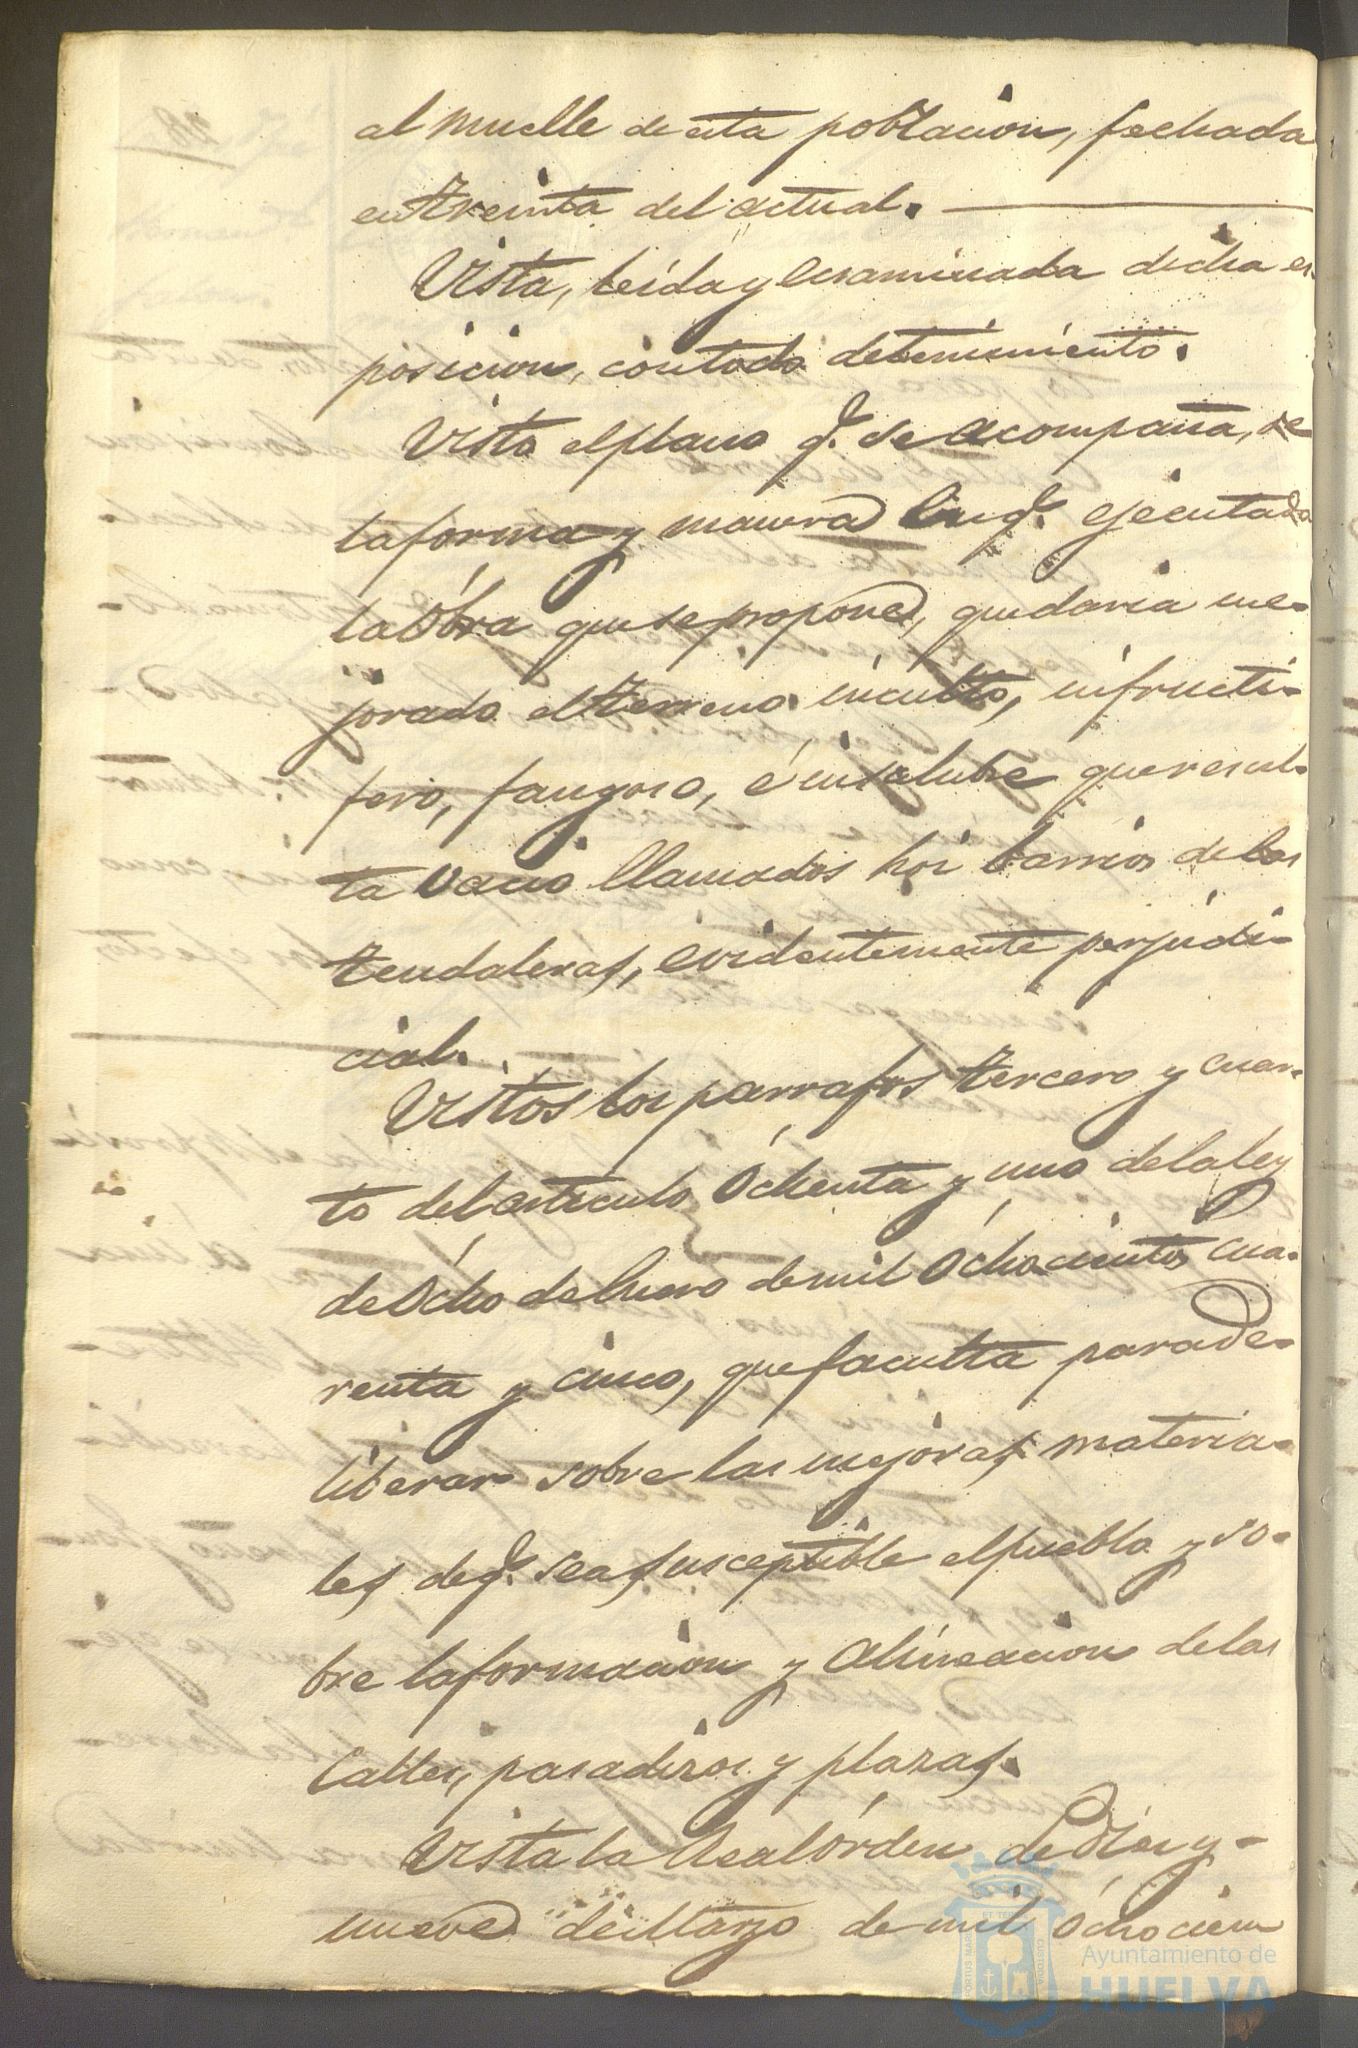 al muelle de esta poblacion, fechada
en treinta del actual.
Vista, leida y ecsaminada dicha es
posicion, con todo detenimiento.
Visto el plano q.e se acompaña, de
la forma y manera en q.e ejecutada
la Obra que se propone, quedaria me-
jorado el terreno inculto, infructi-
fero, fangoso, é insalubre que resul-
ta vacio llamados hoi barrios de las
tendaleras, evidentemente perjudi-
cial.
Vistos los parrafos tercero y cuar-
to del articulo Ochenta y uno de la ley
de Ócho de Enero de mil Óchocientos cua-
renta y cinco, que faculta para de-
liberar sobre las mejoras materia-
les de q.e sea susceptible el pueblo y so-
bre la formacion y Alineacion de las
Calles, pasadizos y plazas.
Vista la Real órden de Diez y-
nueve de Marzo de mil Óchocien
Ayuntamiento de
HUELVA